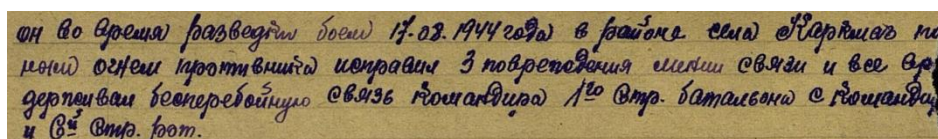 он во время разведки боем 17.08.1944 года в районе села Каркмаз по
ным огнем противника исправил 3 повреждения линии связи и все вре
держивал бесперебойную связь командира 1го стр. батальона с команди
и 6й стр. рот.